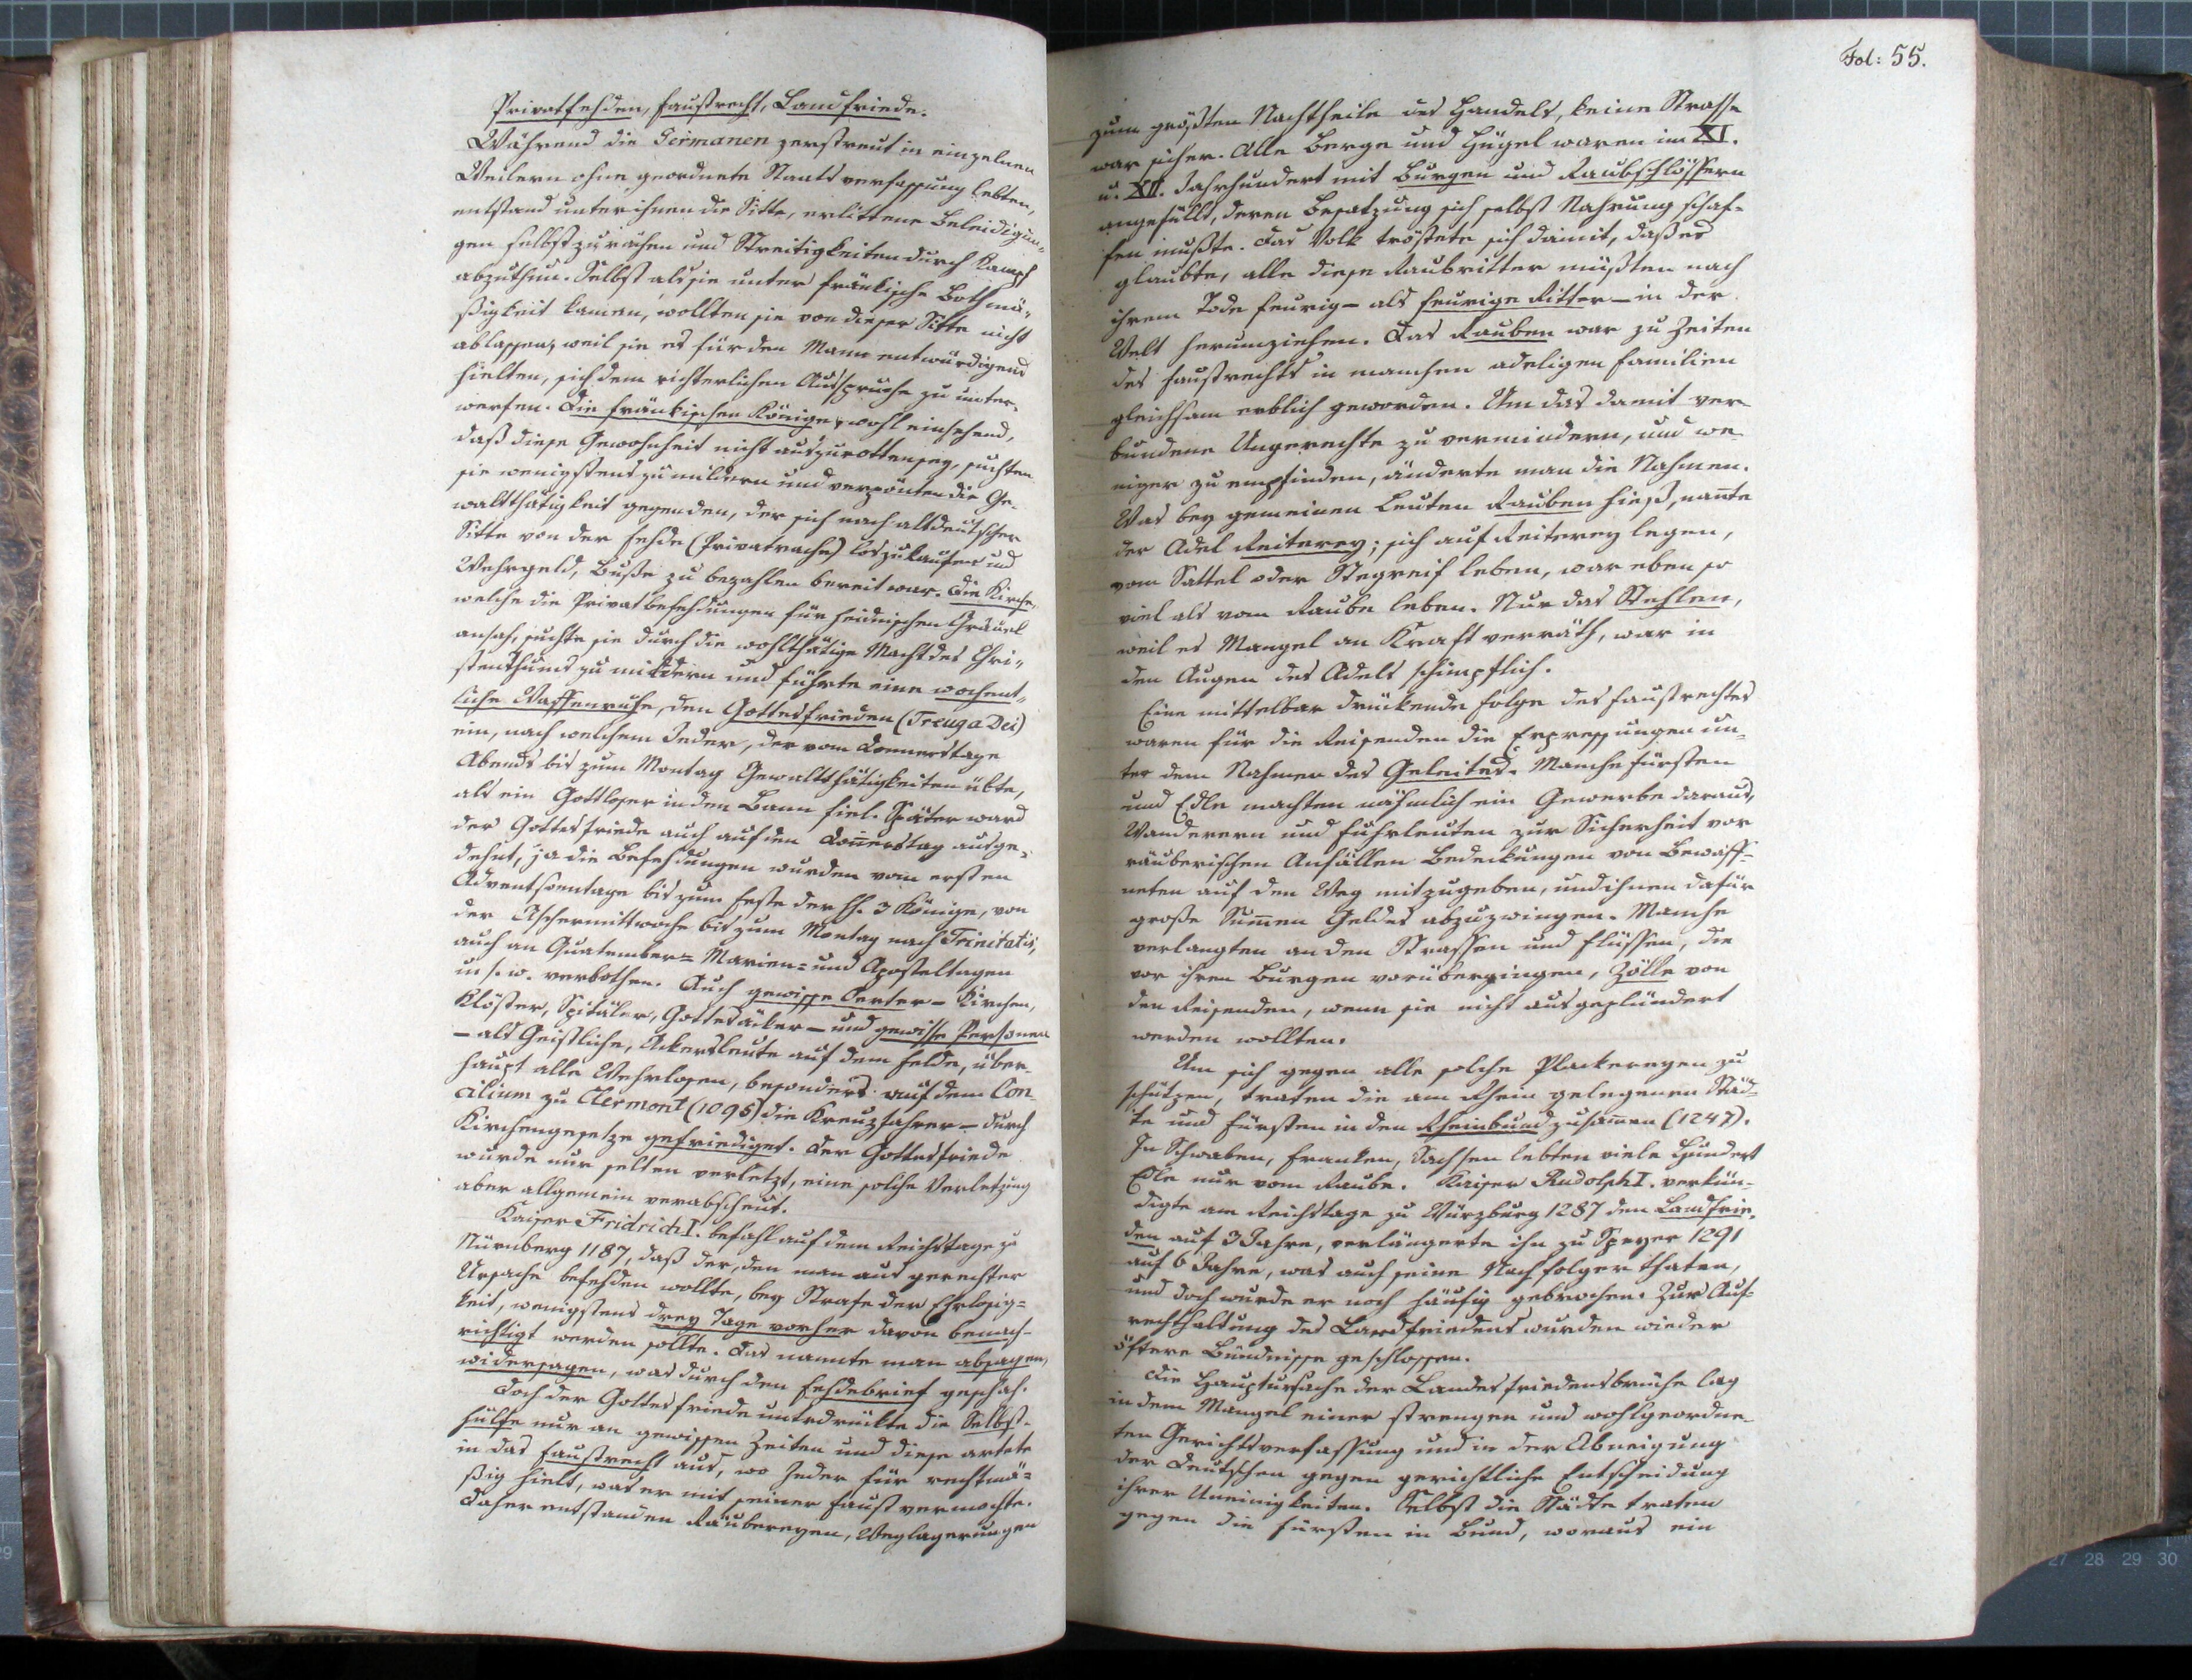 Privatfehden, Faustrecht, Landfriede.
Während die Germanen zerstreut in einzelnen
Weilern ohne geordnete Staatsverfassung lebten,
entstand unter ihnen die Sitte, erlittene Beleidigun„
gen selbst zu rächen und Streitigkeiten durch Kampf
abzuthun. Selbst als sie unter fränkische Bothmä„
ßigkeit kamen, wollten sie von dieser Sitte nicht
ablassen, weil sie es für den Mann entwürdigend
hielten, sich dem richterlichen Ausspruche zu unter„
werfen. Die fränkischen Könige, wohl einsehend,
daß diese Gewohnheit nicht auszurotten sey, suchten
sie wenigstens zu mildern und verpönten die Ge„
waltthätigkeit gegen den, der sich nach altdeutscher
Sitte von der Fehde (Privatrache) loszukaufen und
Wehrgeld, Buße zu bezahlen bereit war. Die Kirche,
welche die Privatbefehdungen für heidnischen Gräuel
ansah, suchte sie durch die wohlthätige Macht des Chri„
stenthums zu mildern und führte eine wochent„
liche Waffenruhe, den Gottesfrieden (Treuga Dei)
ein, nach welchem Jeder, der vom Donnerstage
Abends bis zum Montag Gewaltthätigkeiten übte,
als ein Gottloser in den Bann fiel. Später ward
der Gottesfriede auch auf den Donnerstag ausge„
dehnt, ja die Befehdungen wurden vom ersten
Adventsonntage bis zum Feste der hh. 3 Könige, von
der Aschermittwoche bis zum Montag nach Trinitatis,
auch an Quatember= Marien= und Aposteltagen
u. s. w. verbothen. Auch gewisse Oerter – Kirchen,
Klöster, Spitäler, Gottesäcker – und gewisse Personen
– als Geistliche, Ackersleute auf dem Felde, über„
haupt alle Wehrlosen, besonders auf dem Con„
cilium zu Clermont (1095) die Kreuzfahrer – durch
Kirchengesetze gefriediget. Der Gottesfriede
wurde nur selten verletzt, eine solche Verletzung
aber allgemein verabscheut.
Kaiser Fridrich I. befahl auf dem Reichstage zu
Nürnberg 1187, daß der, den man aus gerechter
Ursache befehden wollte, bey Strafe der Ehrlosig=
keit, wenigstens drey Tage vorher davon benach-
richtigt werden sollte. Das nannte man absagen,
widersagen, was durch den Fehdebrief geschah.
Doch der Gottesfriede unterdrückte die Selbst-
hülfe nur an gewissen Zeiten und diese artete
in das Faustrecht aus, wo Jeder für rechtmä=
ßig hielt, was er mit seiner Faust vermochte.
Daher entstanden Räubereyen, Weglagerungen
Fol: 55.
zum größten Nachtheile des Handels, keine Strasse
war sicher. Alle Berge und Hügel waren im XI.
u. XII. Jahrhundert mit Burgen und Raubschlössern
angefüllt, deren Besatzung sich selbst Nahrung schaf-
fen mußte. Das Volk tröstete sich damit, daß es
glaubte, alle diese Raubritter müßten nach
ihrem Tode feurig – als feurige Ritter – in der
Welt herumziehen. Das Rauben war zu Zeiten
des Faustrechts in manchen adeligen Familien
gleichsam erblich geworden. Um das damit ver-
bundene Ungerechte zu vermindern, und we-
niger zu empfinden, änderte man die Nahmen.
Was bey gemeinen Leuten Rauben hieß, nañte
der Adel Reiterey; sich auf Reiterey legen,
vom Sattel oder Stegreif leben, war eben so
viel als vom Raube leben. Nur das Stehlen,
weil es Mangel an Kraft verräth, war in
den Augen des Adels schimpflich.
Eine mittelbar drückende Folge des Faustrechtes
waren für die Reisenden die Erpressungen un-
ter dem Nahmen des Geleites. Manche Fürsten
und Edle machten nähmlich ein Gewerbe daraus,
Wanderern und Fuhrleuten zur Sicherheit vor
räuberischen Anfällen Bedeckungen von Bewaff-
neten auf den Weg mitzugeben, und ihnen dafür
große Sum̃en Geldes abzuzwingen. Manche
verlangten an den Strassen und Flüssen, die
vor ihren Burgen vorübergingen, Zölle von
den Reisenden, wenn sie nicht ausgeplündert
werden wollten.
Um sich gegen alle solche Plackereyen zu
schützen, traten die am Rhein gelegenen Städ-
te und Fürsten in den Rheinbund zusam̃en (1247).
In Schwaben, Franken, Sachsen lebten viele Hundert
Edle nur vom Raube. Kaiser Rudolph I. verkün-
digte am Reichstage zu Würzburg 1287 den Landfrie-
den auf 3 Jahre, verlängerte ihn zu Speyer 1291
auf 6 Jahre, was auch seine Nachfolger thaten,
und doch wurde er noch häufig gebrochen. Zur Auf-
rechthaltung des Landfriedens wurden wieder
öftere Bündnisse geschlossen.
Die Hauptursache der Landesfriedensbrüche lag
in dem Mangel einer strengen und wohlgeordne-
ten Gerichtsverfassung und in der Abneigung
der Deutschen gegen gerichtliche Entscheidung
ihrer Uneinigkeiten. Selbst die Städte traten
gegen die Fürsten in Bund, woraus ein
27 28 29 30